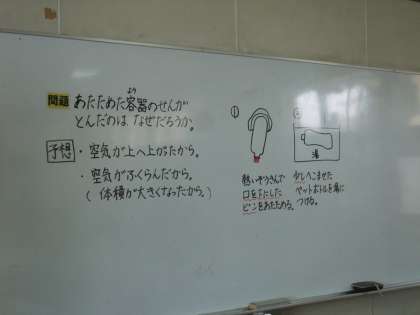 問題 あたためた容器のせんが
よう
とんだのは、なぜだろうか。
予想 ・空気が上へ上がったから。
・空気がふくらんだから。
(体積が大きくなったから。)
①
湯
熱いぞうきんで
口を下にした
ビンをあたためる。
少しへこませた
ペットボトルを湯に
つける。